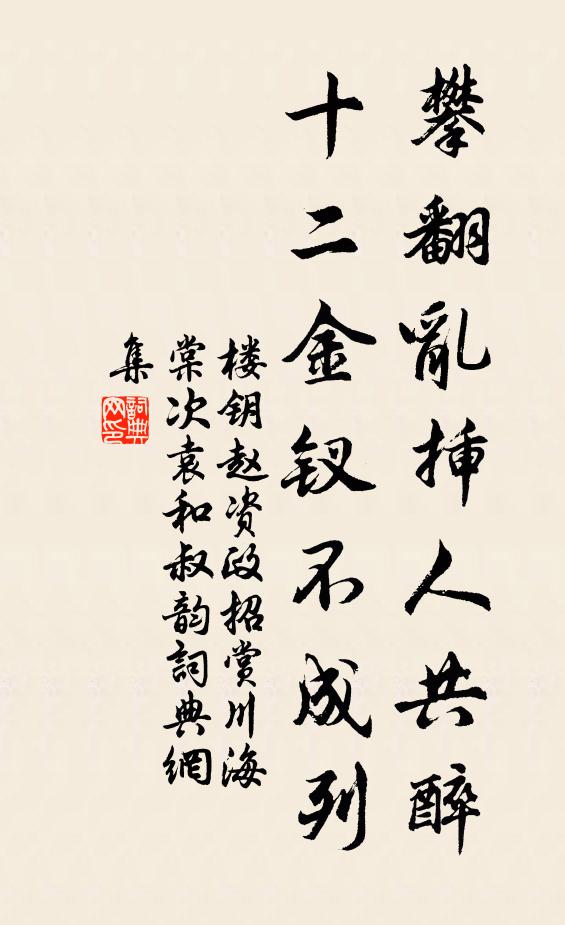 攀翻亂插人共醉
十二金钗不成列
楼钥赵资政招赏川海
棠次袁和叔韵詞典網
集
詞典網印